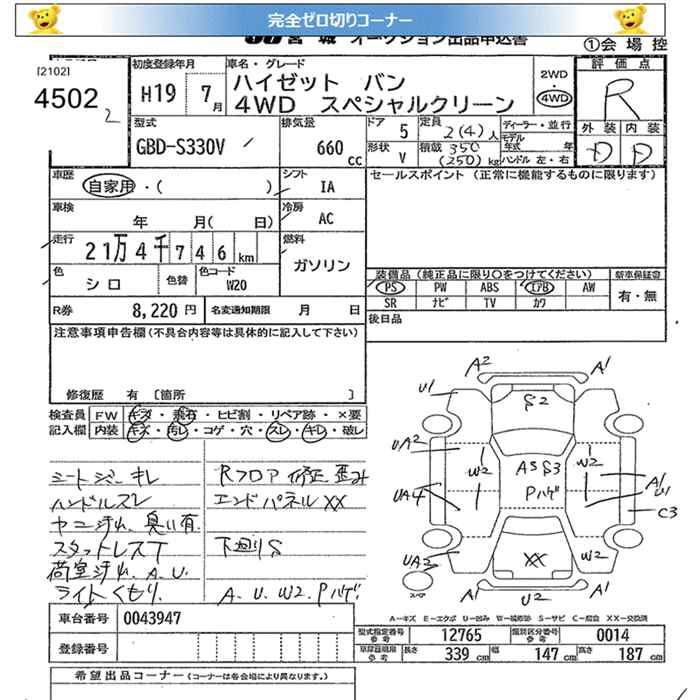 完全ゼロ切りコーナー
USS 宮 城 オークション出品申込書
①会 場 控
[2102]
4502 2
初度登録年月
H19 7月
車名・グレード
ハイゼット バン
4WD スペシャルクリーン
2WD
4WD
評 価 点
R
外 装 内 装
D D
型式
GBD-S330V
排気量
660 cc
ドア 5
形状 V
定員 2(4)人
積載 350 (250) kg
ディーラー・並行
モデル年式 年
ハンドル 左・右
車歴
自家用・( )
シフト
IA
セールスポイント (正常に機能するものに限ります)
車検
年 月( 日)
冷房
AC
走行
21万4千746km
燃料
ガソリン
色
シロ
色替
色コード
W20
装備品 (純正品に限り○をつけてください)
PS PW ABS エアB AW
SR ナビ TV カワ
新車保証書
有・無
R券 8,220円
名変通知期限 月 日
後日品
注意事項申告欄(不具合内容等は具体的に記入して下さい)
修復歴 有 [箇所 ]
検査員記入欄
FW キズ・飛石・ヒビ割・リペア跡・×要
内装 キズ・汚レ・コゲ・穴・スレ・キレ・破レ
シートジャーキレ
ハンドルスレ
ヤニ汚れ、臭い有
スタットレスT
荷室汚れ、A、U、
ライトくもり、
Rフロア修正、歪み
エンドパネルXX
下廻りS
A、U、W2、Pハゲ
A2 A1
U1
S2
UA2
W2
W2
AS S3
Pハゲ
UA4
A1
U1
C3
UA2
XX
W2
A1 U2 A1
スペア
A-キズ E-エクボ U-凹み W-補修跡 S-サビ C-腐食 XX-交換済
車台番号 0043947
登録番号
型式指定番号 参考 12765
類別区分番号 参考 0014
長さ 339 cm 幅 147 cm 高さ 187 cm
希望出品コーナー (コーナーは各会場により異なります。)